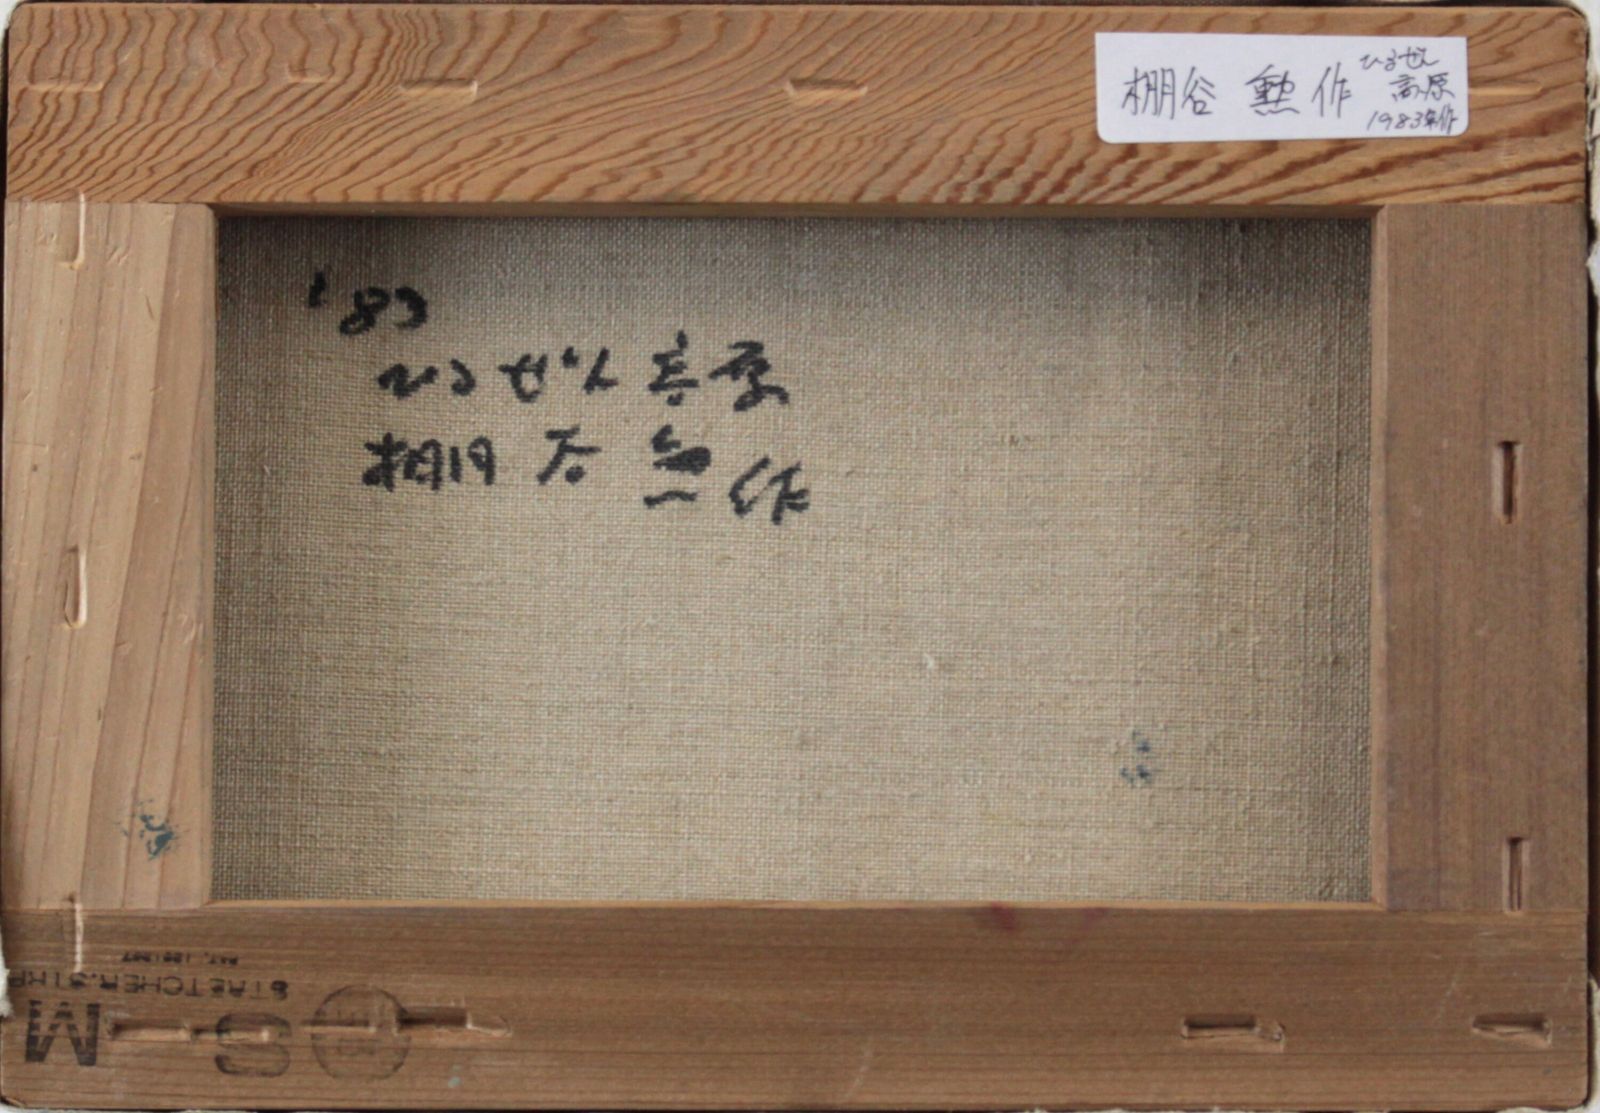 棚谷 勲 作
ひるぜん
高原
1983年作
'83
ひるぜん高原
棚谷 勲 作
STRETCHER.STRIP
S M